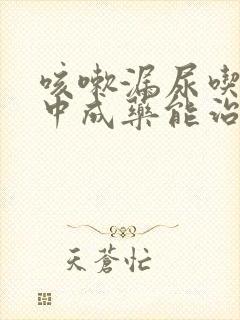 咳嗽漏尿喫
中成藥能治
天蒼忙